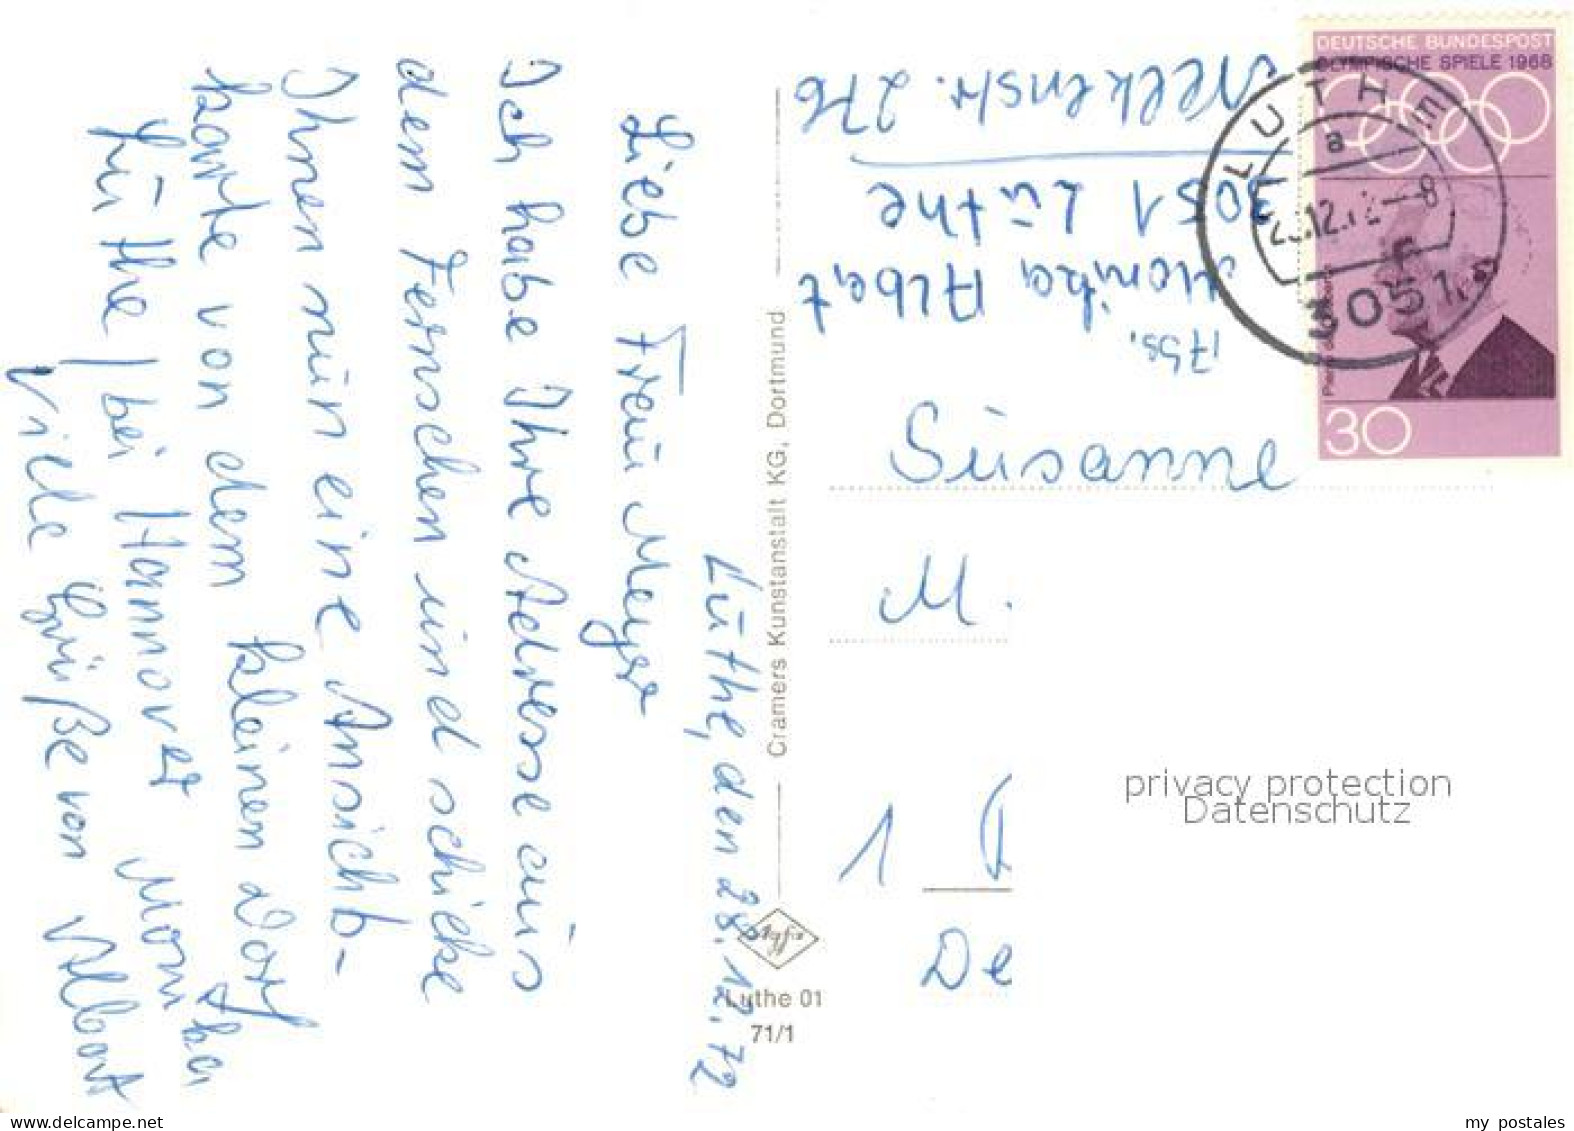 Luthe, den 28.12.72
Liebe Frau Meyer
Ich habe Ihre Adresse aus
dem Fernsehen und schicke
Ihnen nun eine Ansicht-
karte von dem kleinen Dorf
Luthe / bei Hannover
Viele Grüße von Monika
Albert
Cramers Kunstanstalt KG, Dortmund
Luthe 01
71/1
Abs.
Monika Albert
3051 Luthe
Nelkenstr. 276
DEUTSCHE BUNDESPOST
OLYMPISCHE SPIELE 1968
30
LUTHE
a
3051
Susanne
M.
1
De
privacy protection
Datenschutz
www.delcampe.net
my_postales